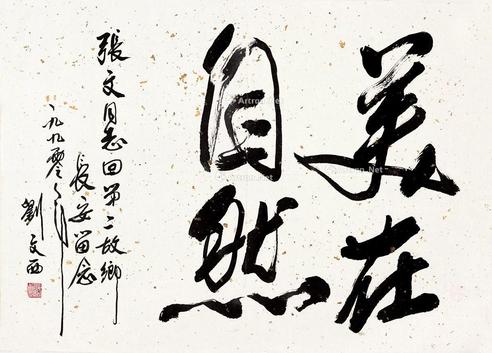 美在
自然
張文同志回第二故鄉
長安留念
一九九零年
劉文西